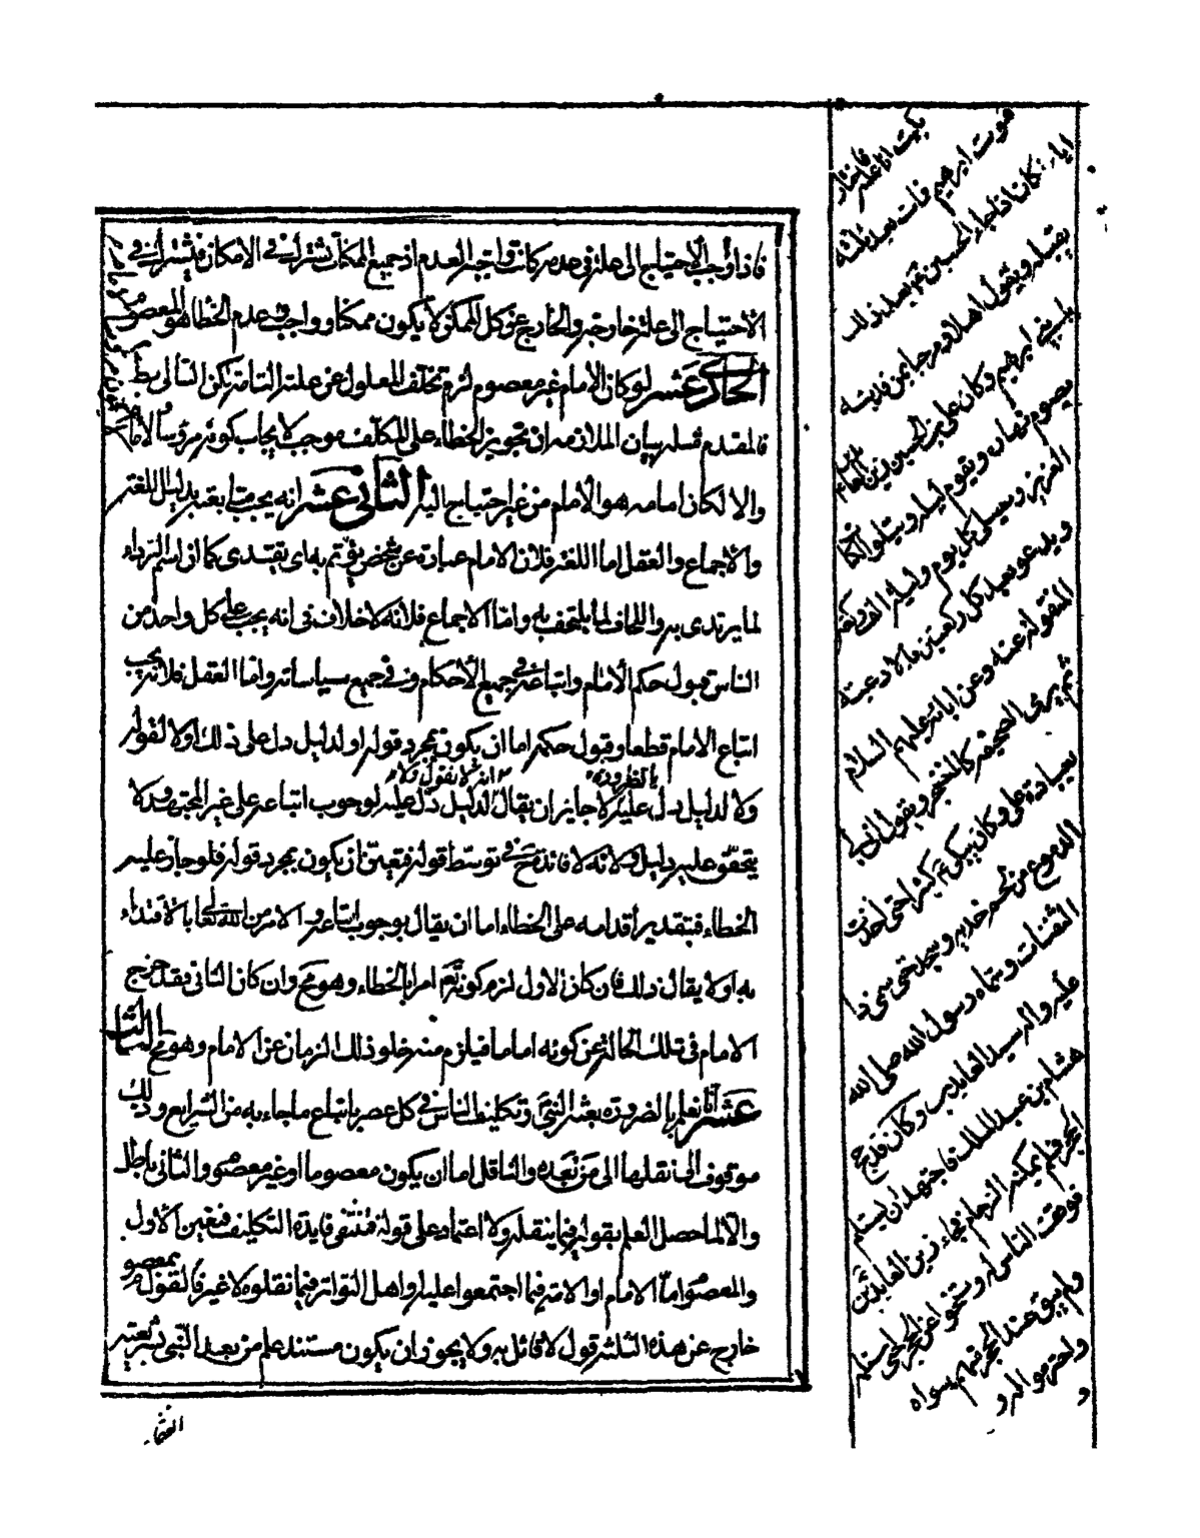 فاذا وجب الاحتياج الى علة في عدمه كانت واجبة العدم اذ جميع الممكنات تشترك في الامكان فتشترك في
الاحتياج الى علة خارجة والخارج عن كل الممكن لا يكون ممكنا وواجب عدم الخطا هو المعصوم
الحادي عشر لو كان الامام غير معصوم لزم تخلف المعلول عن علته التامة لكن التالى بط
فالمقدم مثله بيان الملازمة ان تجويز الخطاء على المكلف موجب لايجاب كونه مرؤسا لامام
والا لكان امامه هو الامام من غير احتياج اليه الثانى عشر انه يجب متابعته بدليل اللغة
والاجماع والعقل اما اللغة فلان الامام عبارة عن شخص يؤتم به اى يقتدى كما ان اسم الرداء
لما يرتدى به واللحاف لما يلتحف به واما الاجماع فلانه لا خلاف فى انه يجب على كل واحد من
الناس قبول حكم الامام واتباعه في جميع الاحكام وفي جميع سياساته واما العقل فلانه يجب
اتباع الامام قطعا وقبول حكمه اما ان يكون بمجرد قوله او لدليل دل على ذلك او لا لقوله
ولا لدليل دل عليه لا جايز ان يقال لدليل دل عليه لوجوب اتباعه على غير المجتهد ولا
يتحقق عليه دليل ولانه لا فائدة ح في توسط قوله فتعين ان يكون بمجرد قوله فلو جاز عليه
الخطاء فبتقدير اقدامه على الخطاء اما ان يقال بوجوب اتباعه والامر من الله تعالى بالاقتداء
به او لا يقال ذلك فان كان الاول لزم كونه تع امرا بالخطاء وهو مح وان كان الثانى فقد خرج
الامام فى تلك الحالة عن كونه اماما فيلزم منه خلو ذلك الزمان عن الامام وهو مح الثالث
عشر انا نعلم بالضرورة بعثة النبى وتكليف الناس في كل عصر باتباع ما جاء به من الشرايع وذلك
موقوف الى نقلها الى من بعده والناقل اما ان يكون معصوما او غير معصوم والثانى باطل
والا لما حصل العلم بقوله فيما ينقله ولا اعتماد على قوله فتنتفى فايدة التكليف فتعين الاول
والمعصوم اما الامام او الامة فيما اجتمعوا عليه او اهل التواتر فيما نقلوه لا غير فالقول بمعصوم
خارج عن هذه الثلثة قول لا قائل به ولا يجوز ان يكون مستند علم من بعد النبى بشريعته
بكيت انا
موت ابرهيم فمات بعد ثلثة
اياه كان اذا جاء الحسين بعد ذلك
يقبله ويقول اهلا ومرحبا بمن فديته
بابنى ابرهيم وكان على بن الحسين زين العابدين
يصوم نهاره ويقوم ليله ويتلو الكتاب
العزيز ويصلى كل يوم وليلة الف ركعة
ويدعو بعد كل ركعتين بالادعية
المنقولة عنه وعن ابائه عليهم السلام
ثم يرمى الصحيفة كالمتضجر ويقول انى لى
بعبادة على وكان يبكى كثيرا حتى اخذت
الدموع من لحم خديه وسجد حتى سمى ذا
الثفنات وسماه رسول الله صلى الله
عليه واله سيد العابدين وكان قد حج
هشام بن عبد الملك فاجتهد ان يستلم
الحجر فلم يمكنه الزحام فجاء زين العابدين
فوقف الناس له وتنحوا عن الحجر حتى استلمه
ولم يبق عند الحجر سواه